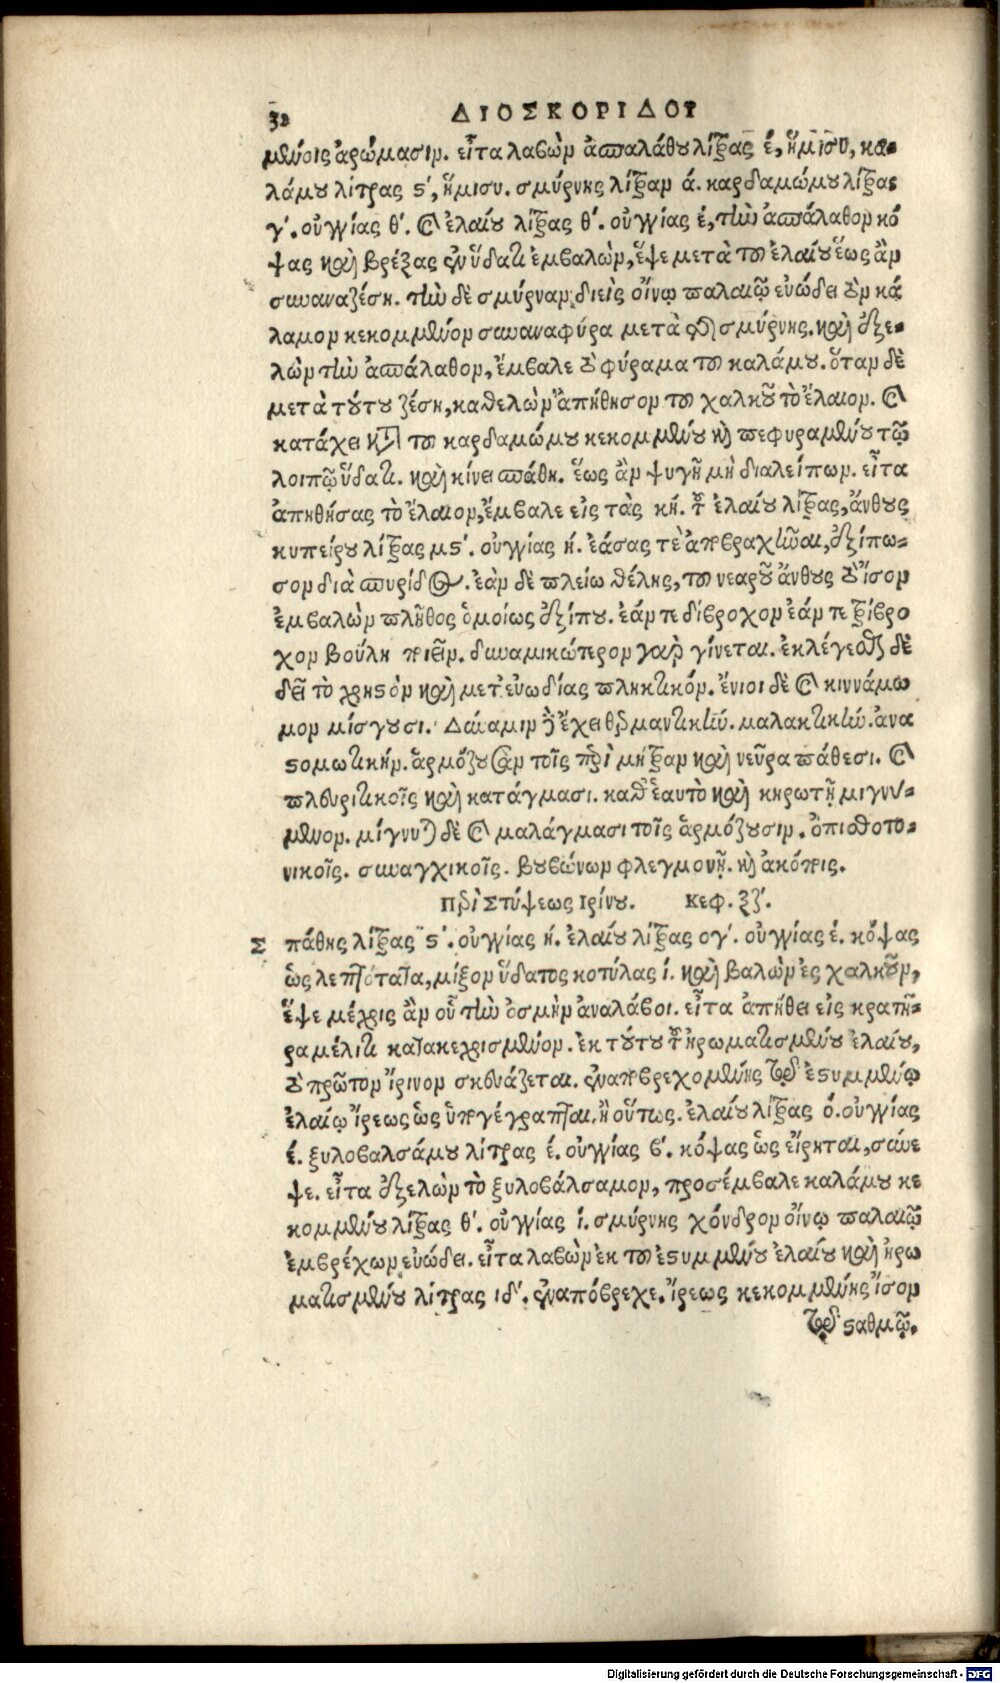 32 ΔΙΟΣΚΟΡΙΔΟΥ
μένοις ἀρώμασιν. εἶτα λαβὼν ἀσπαλάθου λίτρας έ, ἥμισυ, κα-
λάμου λίτρας ϛ΄, ἥμισυ. σμύρνης λίτραν ά. καρδαμώμου λίτρας
γ΄. οὐγγίας θ΄. καὶ ἐλαίου λίτρας θ΄. οὐγγίας έ, τὴν ἀσπάλαθον κό
ψας καὶ βρέξας ἐν ὕδατι ἐμβαλὼν, ἕψε μετὰ τοῦ ἐλαίου ἕως ἂν
συναναζέσῃ. τὴν δὲ σμύρναν διεὶς οἴνῳ παλαιῷ εὐώδει τὸν κά
λαμον κεκομμένον συναναφύρα μετὰ τῆς σμύρνης. καὶ ἐξε-
λὼν τὴν ἀσπάλαθον, ἔμβαλε τὸ φύραμα τοῦ καλάμου. ὅταν δὲ
μετὰ τούτου ζέσῃ, καθελὼν ἀπήθησον τοῦ χαλκοῦ τὸ ἔλαιον. καὶ
κατάχει κατὰ τοῦ καρδαμώμου κεκομμένου καὶ πεφυραμένου τῷ
λοιπῷ ὕδατι. καὶ κίνει σπάθῃ. ἕως ἂν ψυγῇ μὴ διαλείπων. εἶτα
ἀπηθήσας τὸ ἔλαιον, ἔμβαλε εἰς τὰς κή. τοῦ ἐλαίου λίτρας, ἄνθους
κυπείρου λίτρας μϛ΄. οὐγγίας ή. ἐάσας τε ἀποβραχῆναι, ἐξίπω-
σον διὰ σπυρίδος. ἐὰν δὲ πλείω θέλῃς, τοῦ νεαροῦ ἄνθους τὸ ἴσον
ἐμβαλὼν πλῆθος ὁμοίως ἐξίπου. ἐάν τε δίβροχον ἐάν τε τρίβρο
χον βούλῃ ποιεῖν. δυναμικώτερον γὰρ γίνεται. ἐκλέγεσθαι δὲ
δεῖ τὸ χρηστὸν καὶ μετ' εὐωδίας πληκτικόν. ἔνιοι δὲ καὶ κιννάμω
μον μίσγουσι. Δύναμιν δὲ ἔχει θερμαντικήν. μαλακτικήν. ἀνα
στομωτικήν. ἁρμόζουσαν τοῖς περὶ μήτραν καὶ νεῦρα πάθεσι. καὶ
πλευριτικοῖς καὶ κατάγμασι. καθ' ἑαυτὸ καὶ κηρωτῇ μιγνύ-
μενον. μίγνυται δὲ καὶ μαλάγμασι τοῖς ἁρμόζουσιν. ὀπισθοτο-
νικοῖς. συναγχικοῖς. βουβώνων φλεγμονῇ. καὶ ἀκόποις.
Περὶ Στύψεως Ιρίνου. Κεφ. ξζ΄.
Σπάθης λίτρας ϛ΄. οὐγγίας ή. ἐλαίου λίτρας ογ΄. οὐγγίας έ. κόψας
ὡς λεπτότατα, μίξον ὕδατος κοτύλας ί. καὶ βαλὼν ἐς χαλκοῦν,
ἕψε μέχρις ἂν οὗ τὴν ὀσμὴν ἀναλάβοι. εἶτα ἀπήθει εἰς κρατῆ-
ρα μέλιτι κατακεχρισμένον. ἐκ τούτου τοῦ ἠρωματισμένου ἐλαίου,
τὸ πρῶτον ἴρινον σκευάζεται. ἐναποβρεχομένης τῷ ἐστυμμένῳ
ἐλαίῳ ἴρεως ὡς ὑπογέγραπται. ἢ οὕτως. ἐλαίου λίτρας ό. οὐγγίας
έ. ξυλοβαλσάμου λίτρας έ. οὐγγίας β΄. κόψας ὡς εἴρηται, σύνε
ψε. εἶτα ἐξελὼν τὸ ξυλοβάλσαμον, προσέμβαλε καλάμου κε
κομμένου λίτρας θ΄. οὐγγίας ί. σμύρνης χόνδρον οἴνῳ παλαιῷ
ἐμβρέχων εὐώδει. εἶτα λαβὼν ἐκ τοῦ ἐστυμμένου ἐλαίου καὶ ἠρω
ματισμένου λίτρας ιδ΄. ἐναπόβρεχε. ἴρεως κεκομμένης ἴσον
τῷ σταθμῷ.
Digitalisierung gefördert durch die Deutsche Forschungsgemeinschaft - DFG